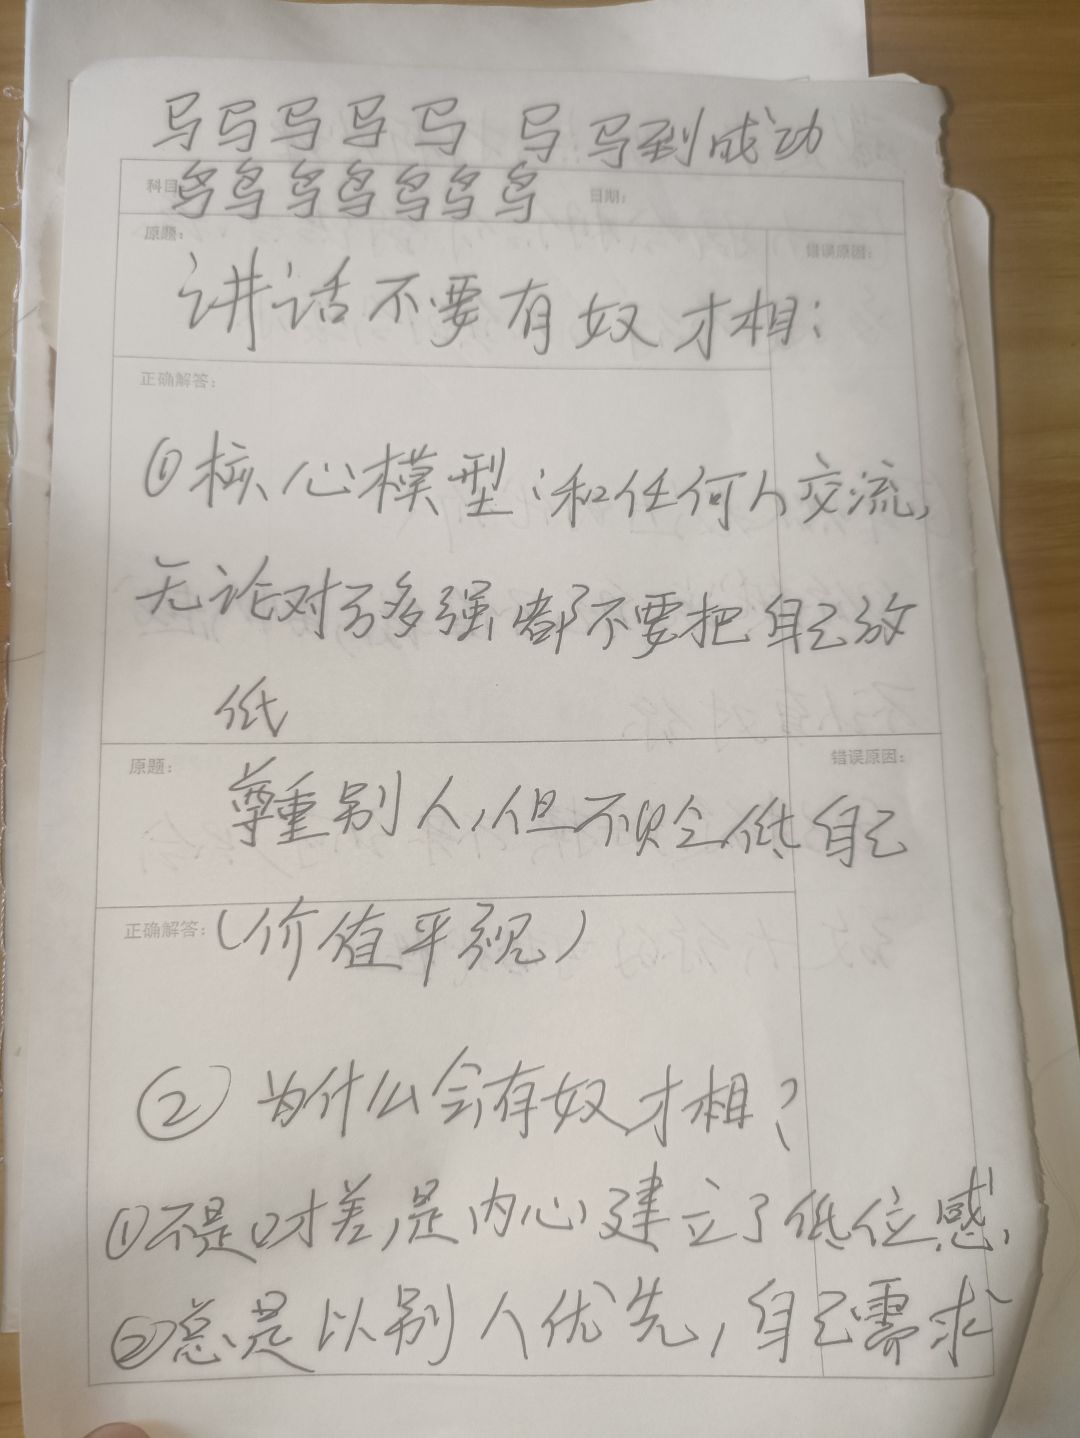 马马马马马 马马到成功
科目 鸟鸟鸟鸟鸟鸟鸟 日期：
原题： 错误原因：
讲话不要有奴才相：
正确解答：
①核心模型：和任何人交流，
无论对方多强，都不要把自己放
低
原题： 错误原因：
尊重别人，但不贬低自己
正确解答：（价值平视）
② 为什么会有奴才相？
①不是口才差，是内心建立了低位感，
②总是以别人优先，自己需求